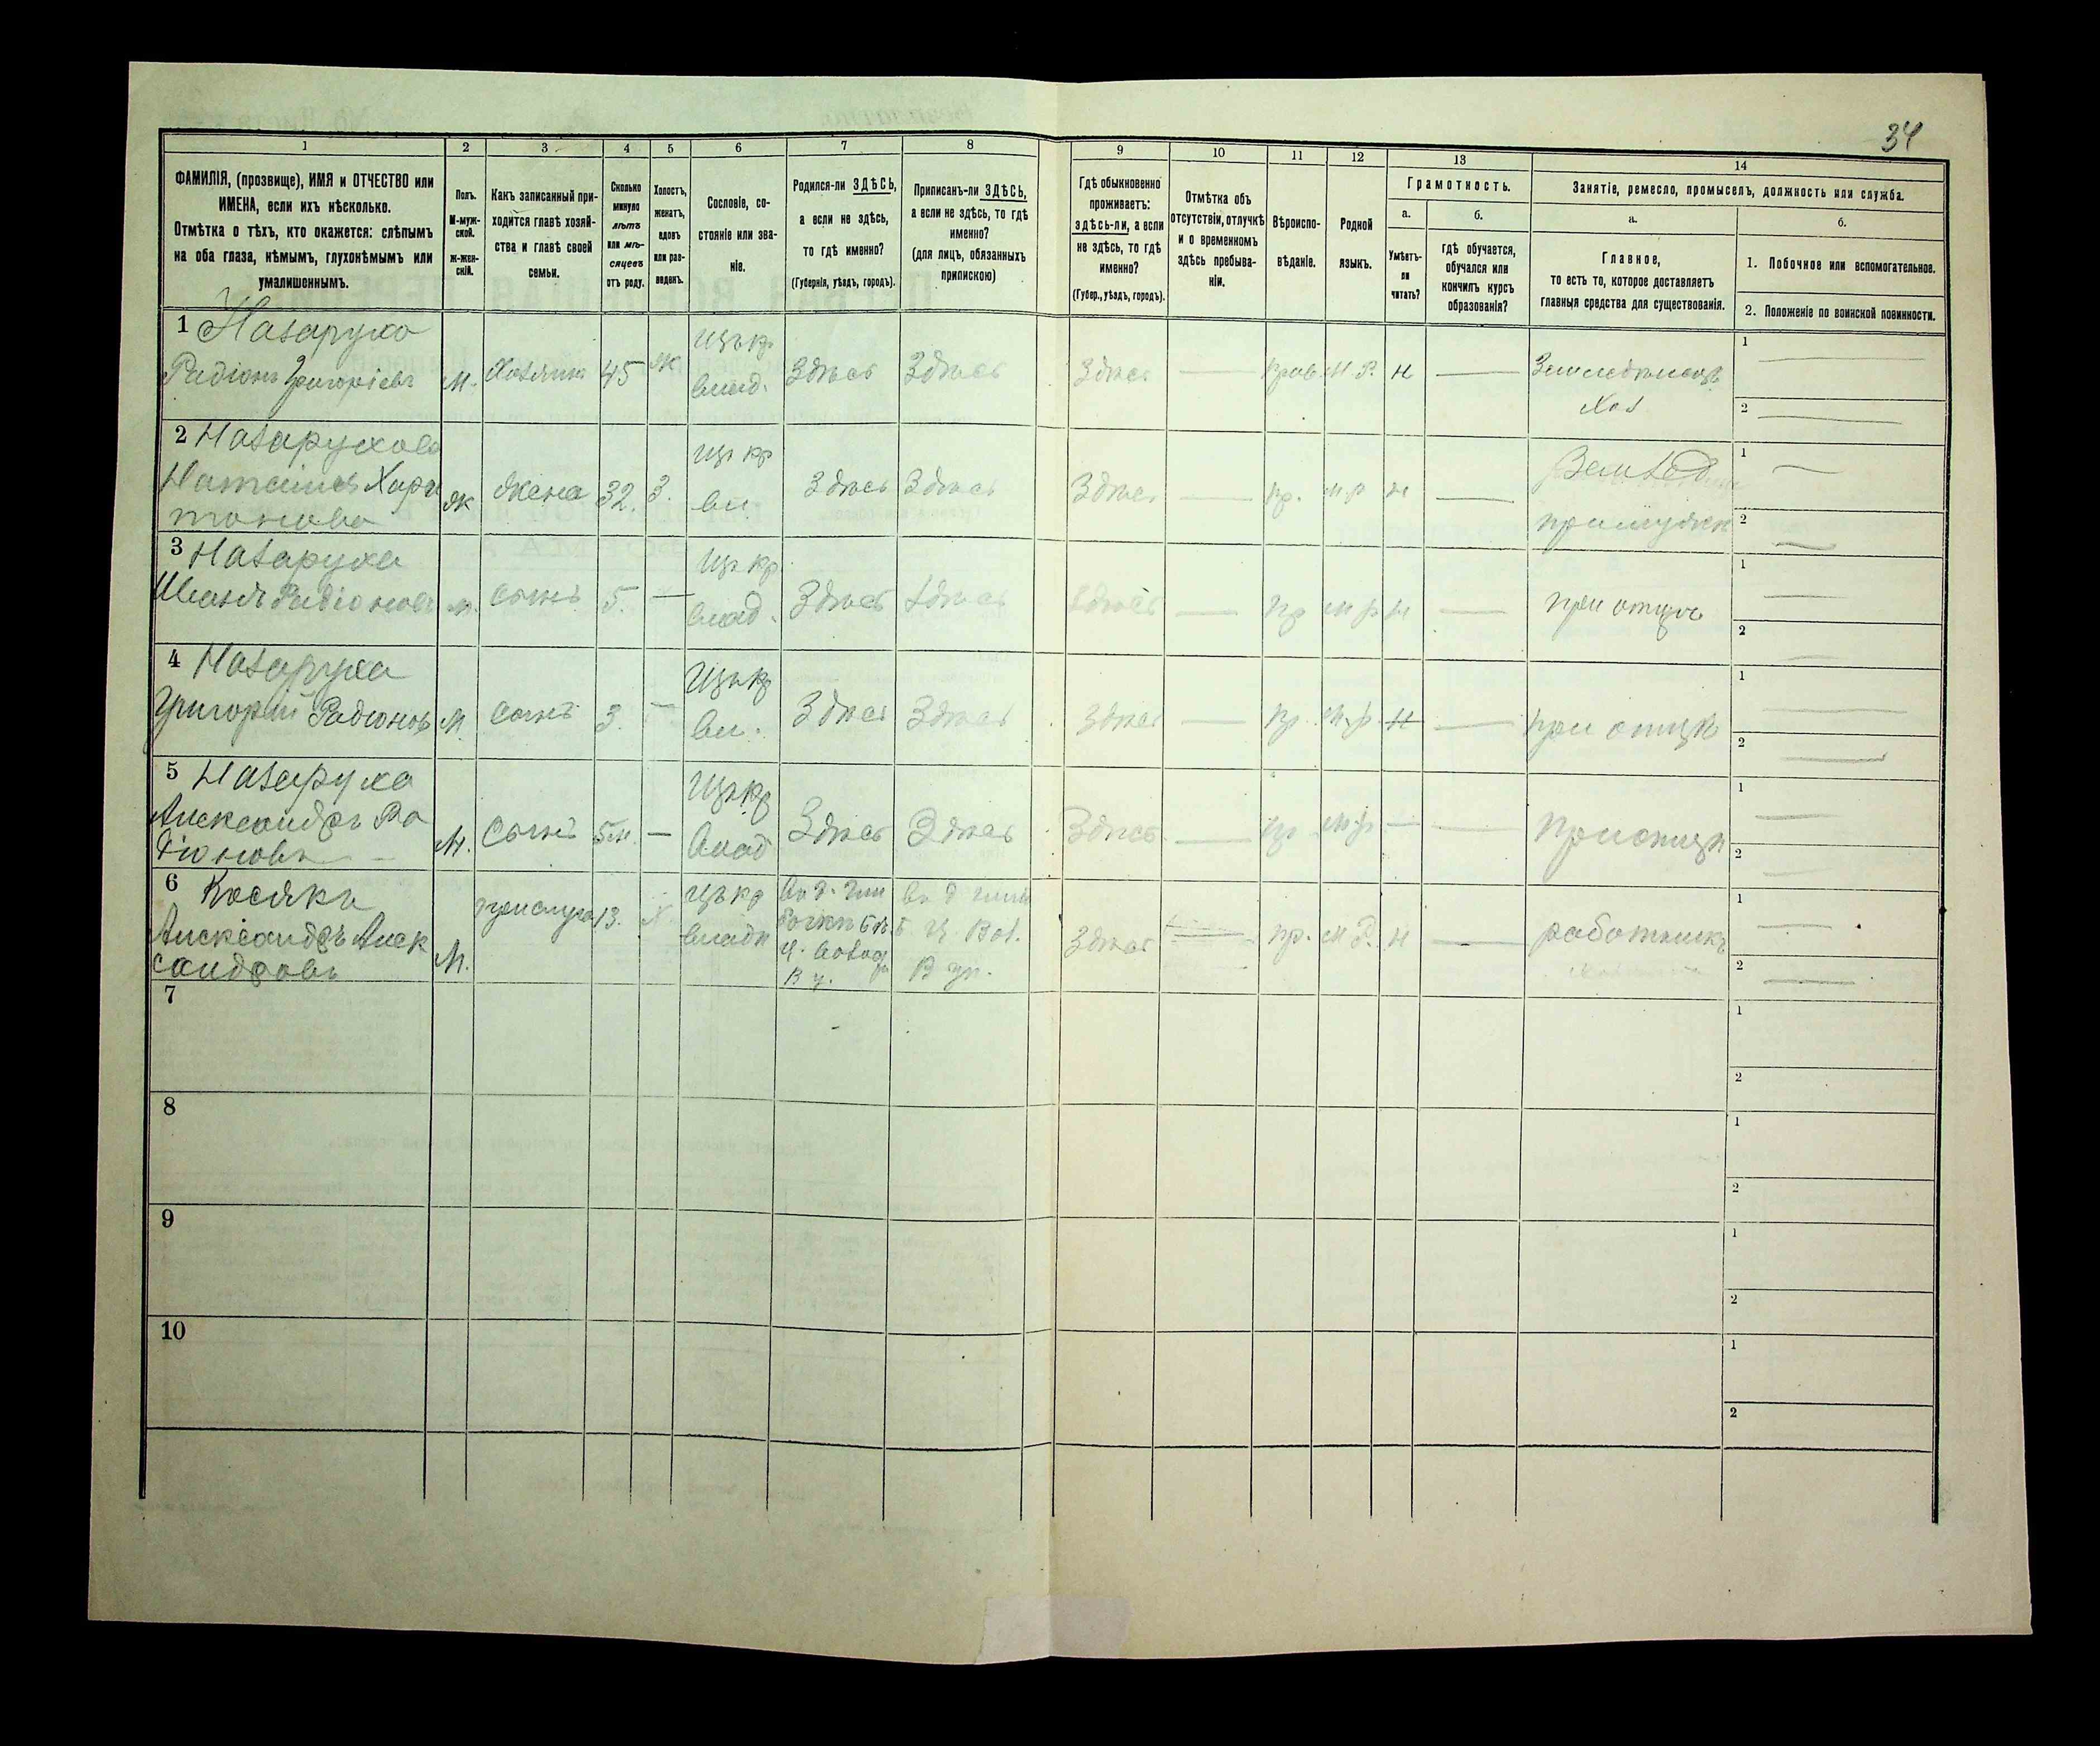 34
1
2
3
4
5
6
7
8
9
10
11
12
13
14
ФАМИЛІЯ, (прозвище), ИМЯ и ОТЧЕСТВО или
ИМЕНА, если ихъ нѣсколько.
Отмѣтка о тѣхъ, кто окажется: слѣпымъ
на оба глаза, нѣмымъ, глухонѣмымъ или
умалишеннымъ.
Полъ.
М-муж-
ской.
ж-жен-
скій.
Какъ записанный при-
ходится главѣ хозяй-
ства и главѣ своей
семьи.
Сколько
минуло
лѣтъ
или мѣ-
сяцевъ
отъ роду.
Холостъ,
женатъ,
вдовъ
или раз-
веденъ.
Сословіе, со-
стояніе или зва-
ніе.
Родился-ли ЗДѢСЬ,
а если не здѣсь,
то гдѣ именно?
(Губернія, уѣздъ, городъ).
Приписанъ-ли ЗДѢСЬ,
а если не здѣсь, то гдѣ
именно?
(для лицъ, обязанныхъ
припискою)
Гдѣ обыкновенно
проживаетъ:
здѣсь-ли, а если
не здѣсь, то гдѣ
именно?
(Губер., уѣздъ, городъ).
Отмѣтка объ
отсутствіи, отлучкѣ
и о временномъ
здѣсь пребыва-
ніи.
Вѣроиспо-
вѣданіе.
Родной
языкъ.
Грамотность.
а.
Умѣетъ-
ли
читать?
б.
гдѣ обучается,
обучался или
кончилъ курсъ
образованія?
Занятіе, ремесло, промыселъ, должность или служба.
а.
Главное,
то есть то, которое доставляетъ
главныя средства для существованія.
б.
1. Побочное или вспомогательное.
2. Положеніе по воинской повинности.
1 Назаруха
Радіонъ Григоріевъ
М.
Хозяинъ
45
ж
Цъ кр
влад.
Здѣсь
Здѣсь
Здѣсь
прав.
м. р.
н
Земледѣлецъ
Хоз
1
2
2 Назарухова
Наталія Хари
тонова
ж
жена
32.
З.
Цъ кр
вл.
Здѣсь
Здѣсь
Здѣсь
пр.
м р
н
при мужѣ
1
2
3 Назаруха
Иванъ Радіоновъ
м.
сынъ
5.
Цъ кр
влад.
Здѣсь
Здѣсь
Здѣсь
пр
м р
н
при отцѣ
1
2
4 Назаруха
Григорій Радіоновъ
М
сынъ
3.
Цъ кр
вл.
Здѣсь
Здѣсь
Здѣсь
пр.
м р
н
при отцѣ
1
2
5 Назаруха
Александръ Ра
діоновъ
М.
Сынъ
5 м.
Цъ кр
влад
Здѣсь
Здѣсь
Здѣсь
пр
м р
при отцѣ
1
2
6 Косякъ
Александръ Алек
сандровъ
М.
прислуга
13.
х
Цъ кр
владѣ
Здѣсь
пр.
м р.
н
работникъ
1
2
7
1
2
8
1
2
9
1
2
10
1
2